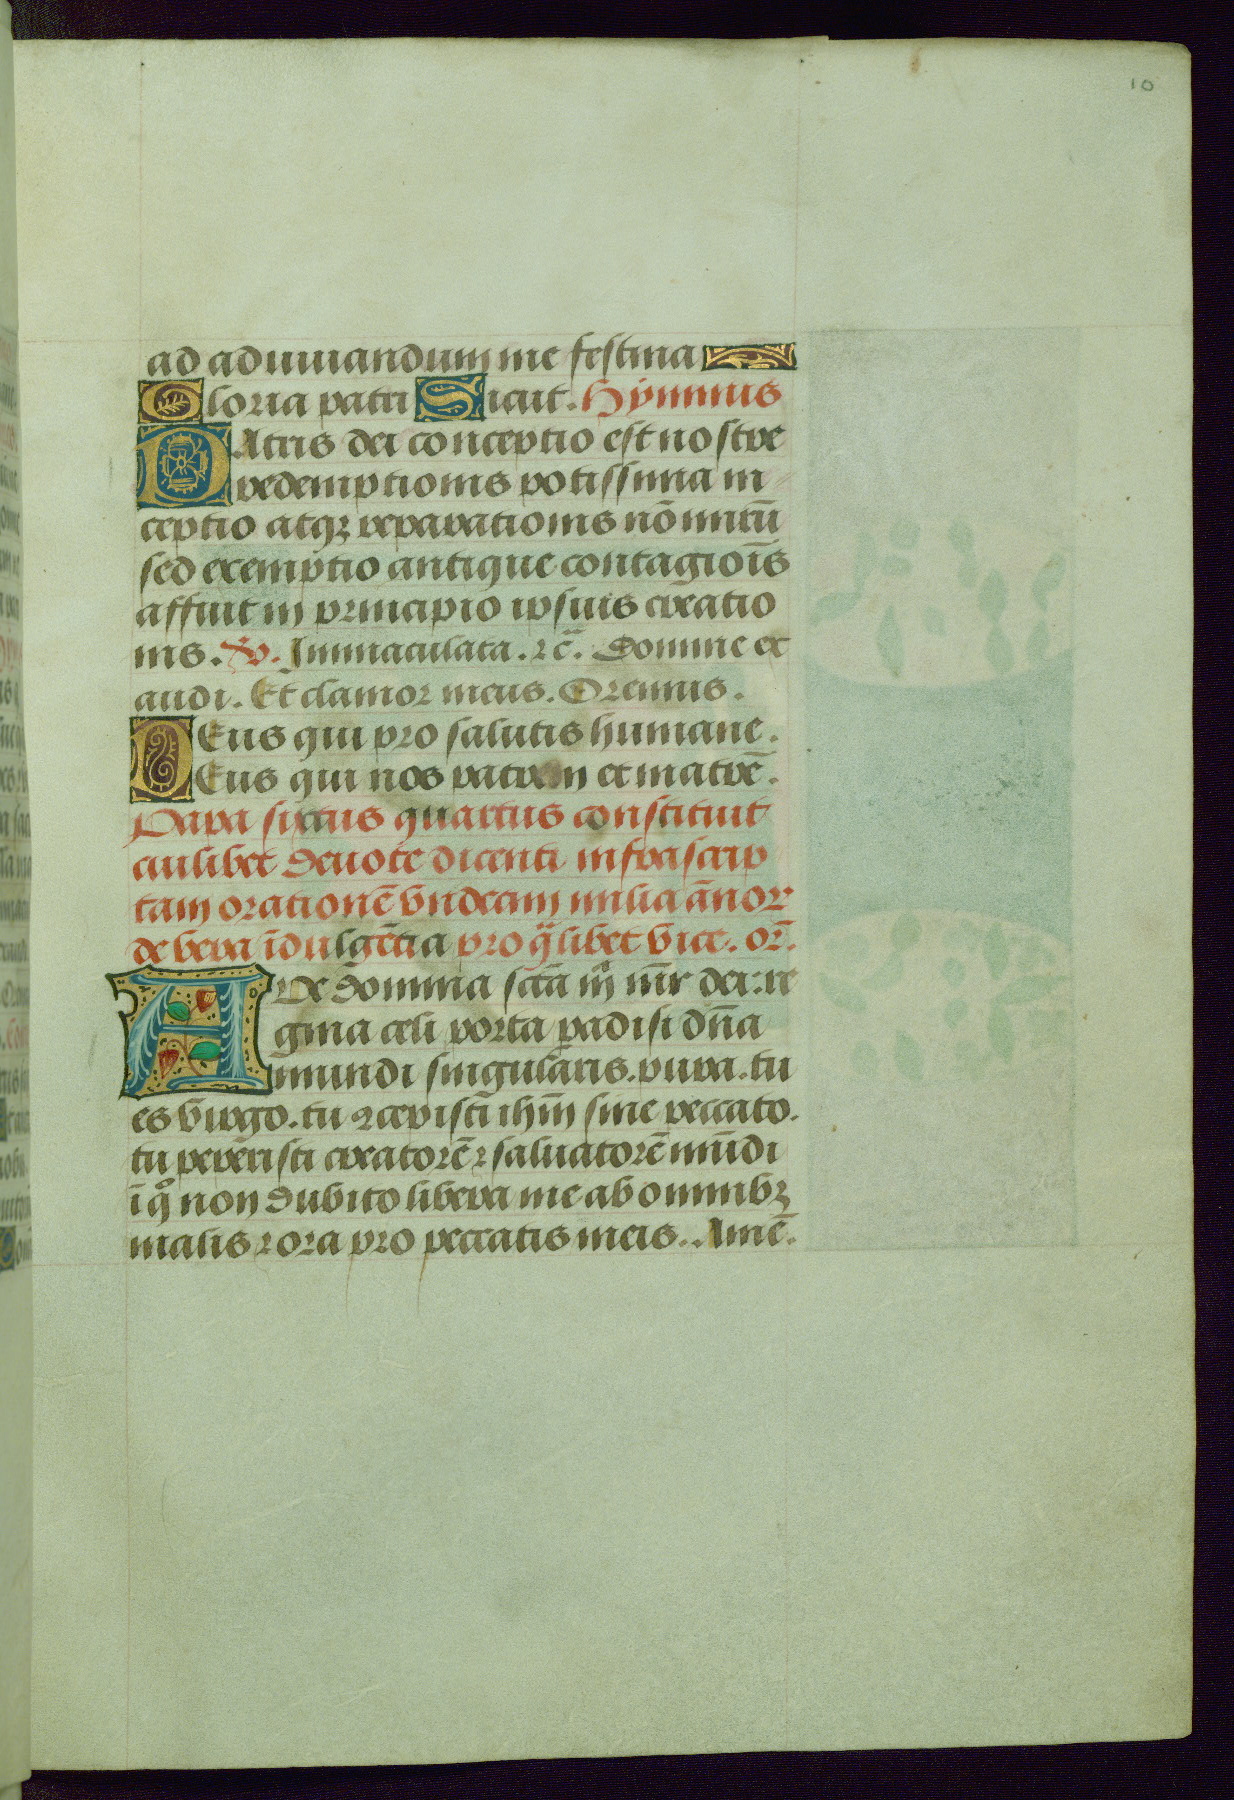 10
ad adiuuandum me festina
Gloria patri Sicut. Hÿmnus
Matris dei conceptio est nostre
redemptionis potissima in
ceptio atqꝫ reparationis nō nutū
sed exemptio antique contagiōis
affuit in principio ipsius creatio
nis. V. Immaculata. ⁊c̄. Domine ex
audi. Et clamor meus. Oremus.
Deus qui pro salutis humane.
Deus qui nos patrem et matrē.
Papa sixtus quartus constituit
cuilibet deuote dicenti infrascrip
tam orationē vndecim milia ānor
de vera īdulgētia pro q̄libet vice. or̄.
Aue domina sctā m̄ mr̄ dei: re
gina celi porta padisi dn̄a
mundi singularis. pura. tu
es virgo. tu ꝯcepisti ihm̄ sine peccato.
tu peperisti creatorē ⁊ saluatorē mūdi
ī qͦ non dubito libera me ab omnibꝫ
malis ⁊ ora pro peccatis meis. Amē.